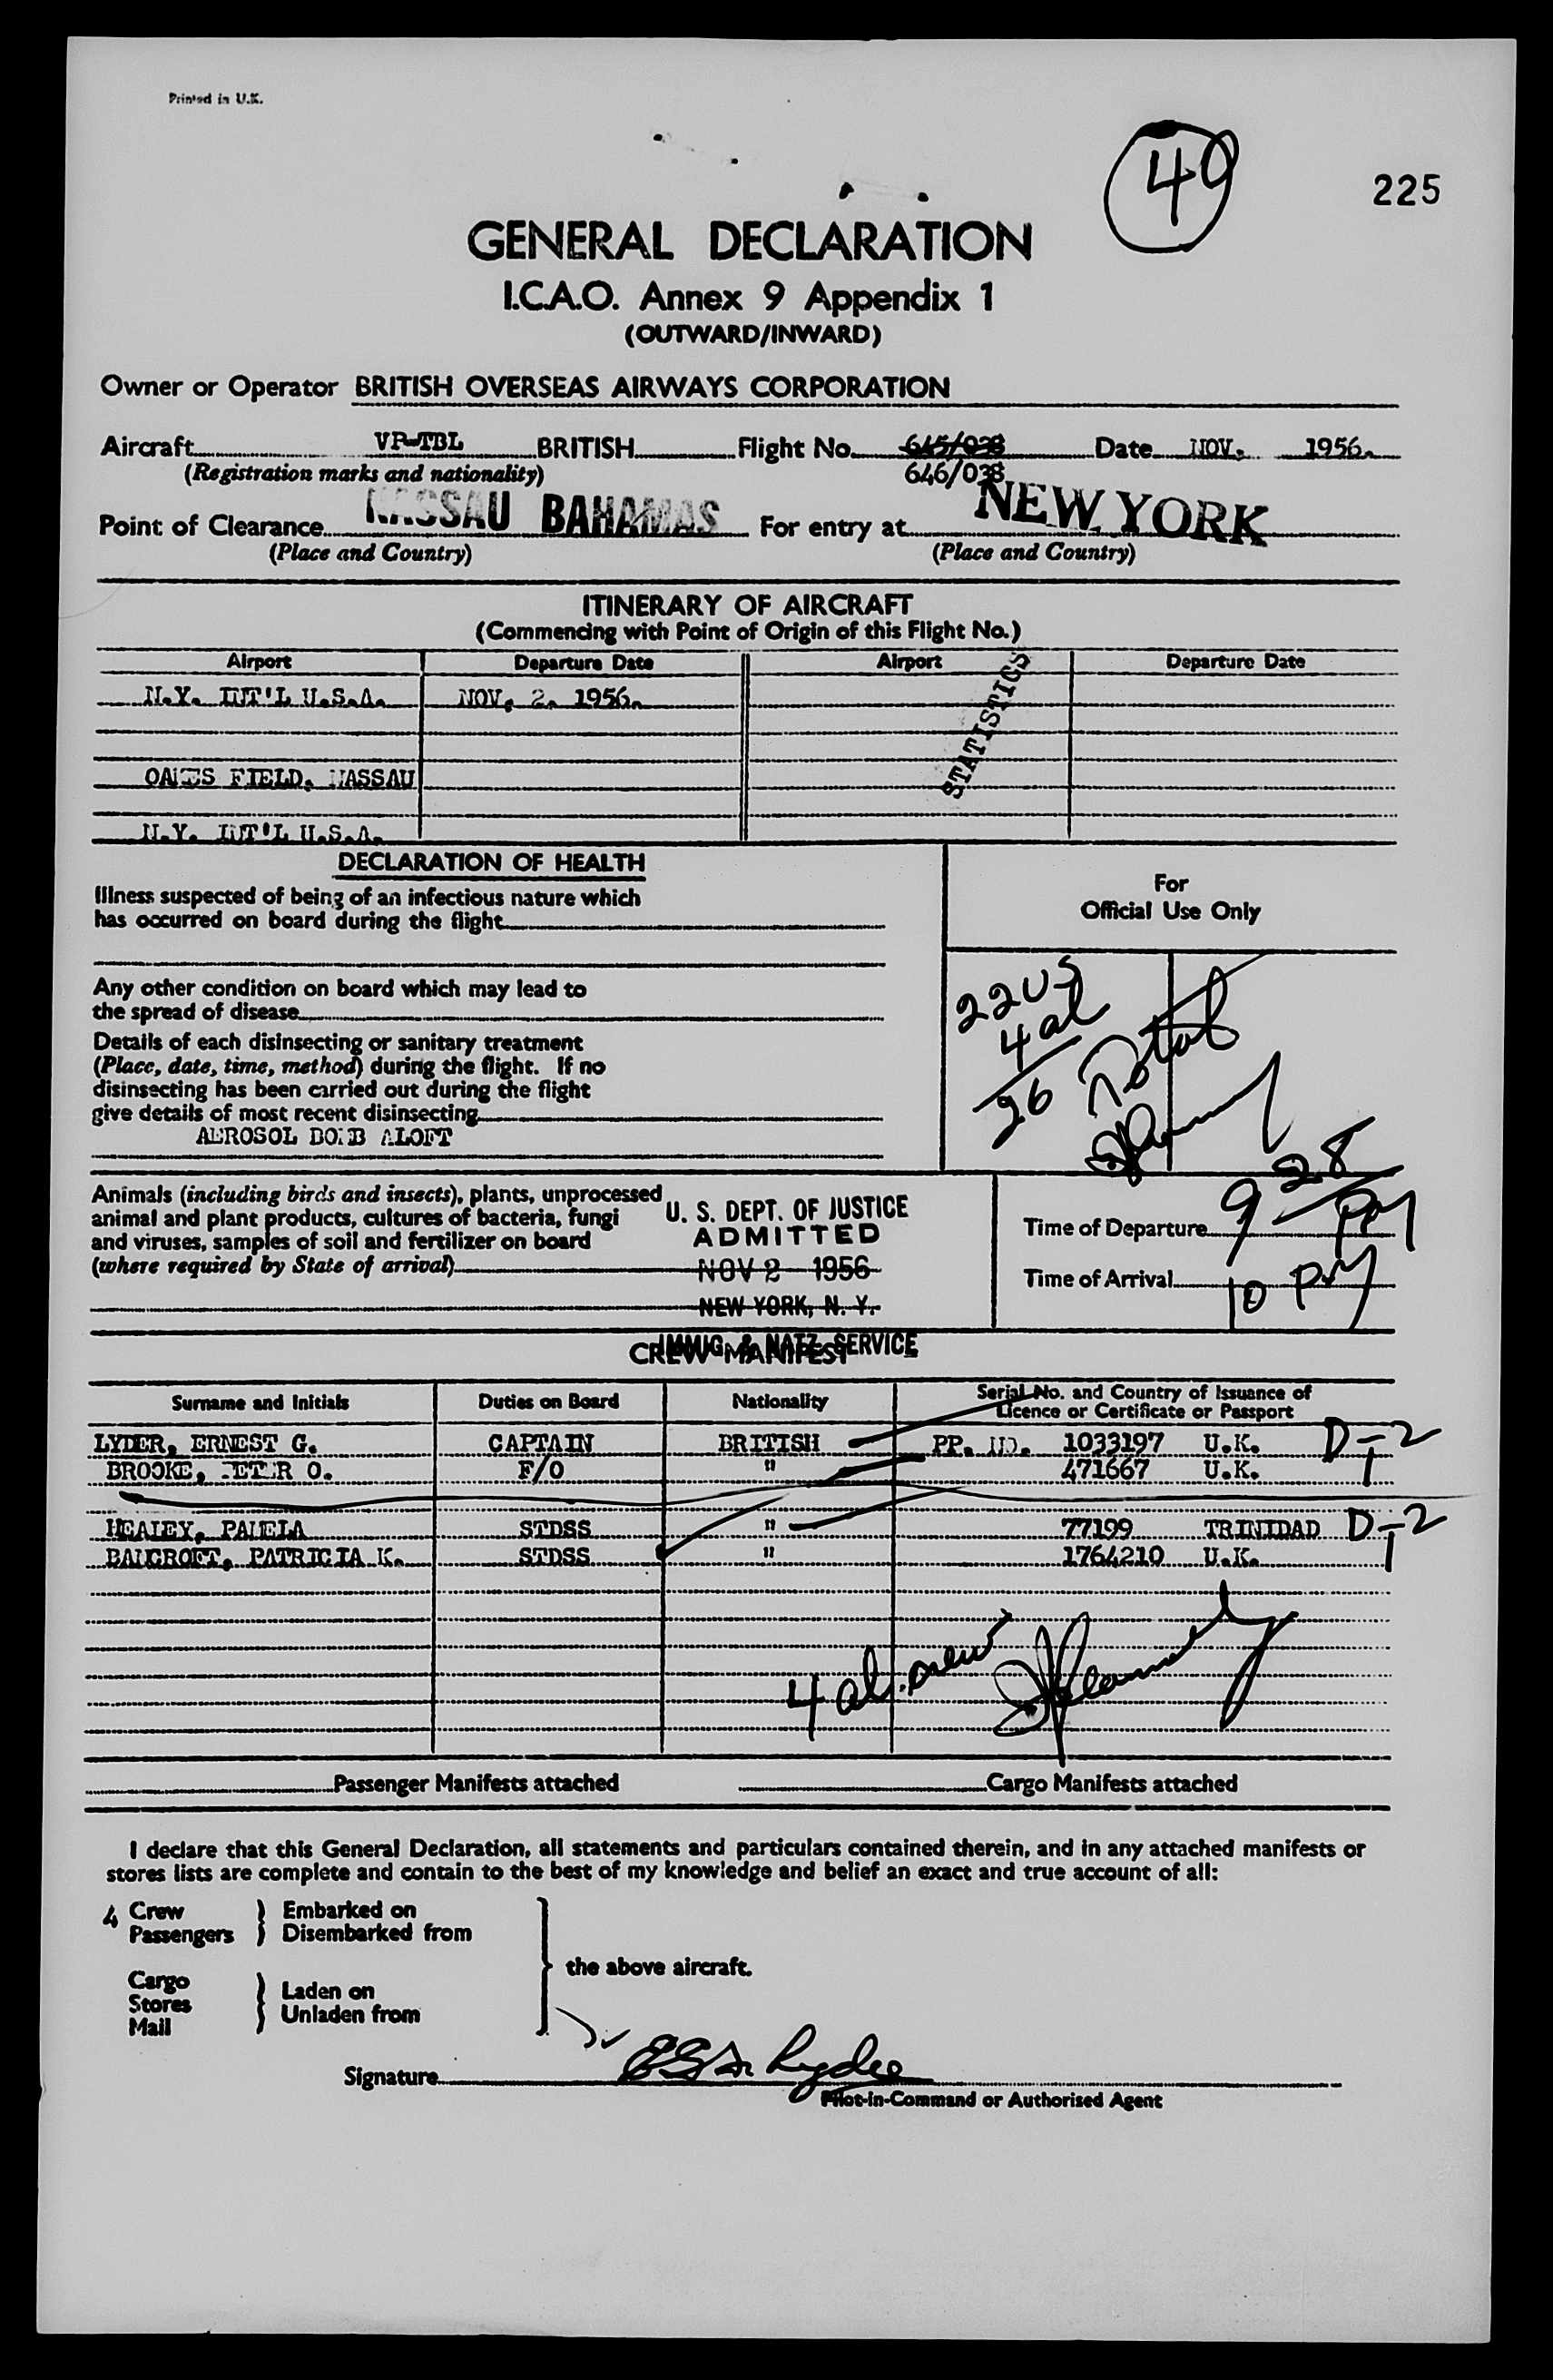 Printed in U.K.
49
225
GENERAL DECLARATION
I.C.A.O. Annex 9 Appendix 1
(OUTWARD/INWARD)
Owner or Operator BRITISH OVERSEAS AIRWAYS CORPORATION
Aircraft VP-TBL BRITISH Flight No. 645/038 Date NOV. 1956.
(Registration marks and nationality) 646/038
Point of Clearance NASSAU BAHAMAS For entry at NEW YORK
(Place and Country) (Place and Country)
ITINERARY OF AIRCRAFT
(Commencing with Point of Origin of this Flight No.)
Airport Departure Date Airport Departure Date
N.Y. INT'L U.S.A. NOV. 2. 1956.
STATISTICS
OAKES FIELD, NASSAU
N.Y. INT'L U.S.A.
DECLARATION OF HEALTH
For
Official Use Only
Illness suspected of being of an infectious nature which
has occurred on board during the flight
Any other condition on board which may lead to
the spread of disease
Details of each disinsecting or sanitary treatment
(Place, date, time, method) during the flight. If no
disinsecting has been carried out during the flight
give details of most recent disinsecting
AEROSOL BOMB ALOFT
22 US
4 al
26 Total
Animals (including birds and insects), plants, unprocessed
animal and plant products, cultures of bacteria, fungi
and viruses, samples of soil and fertilizer on board
(where required by State of arrival)
U. S. DEPT. OF JUSTICE
ADMITTED
NOV 2 1956
NEW YORK, N. Y.
IMMIG. & NATZ. SERVICE
Time of Departure 9 28 PM
Time of Arrival 10 PM
CREW MANIFEST
Surname and Initials Duties on Board Nationality Serial No. and Country of Issuance of
Licence or Certificate or Passport
LYDER, ERNEST G. CAPTAIN BRITISH PP. NO. 1033197 U.K. D-2
BROOKE, PETER O. F/O " 471667 U.K.
HEALEY, PAMELA STDSS " 77199 TRINIDAD D-2
BANCROFT, PATRICIA K. STDSS " 1764210 U.K.
4 al. crew
Passenger Manifests attached Cargo Manifests attached
I declare that this General Declaration, all statements and particulars contained therein, and in any attached manifests or
stores lists are complete and contain to the best of my knowledge and belief an exact and true account of all:
4 Crew } Embarked on
Passengers } Disembarked from
the above aircraft.
Cargo
Stores } Laden on
Mail } Unladen from
Signature E G Lyder
Pilot-in-Command or Authorised Agent